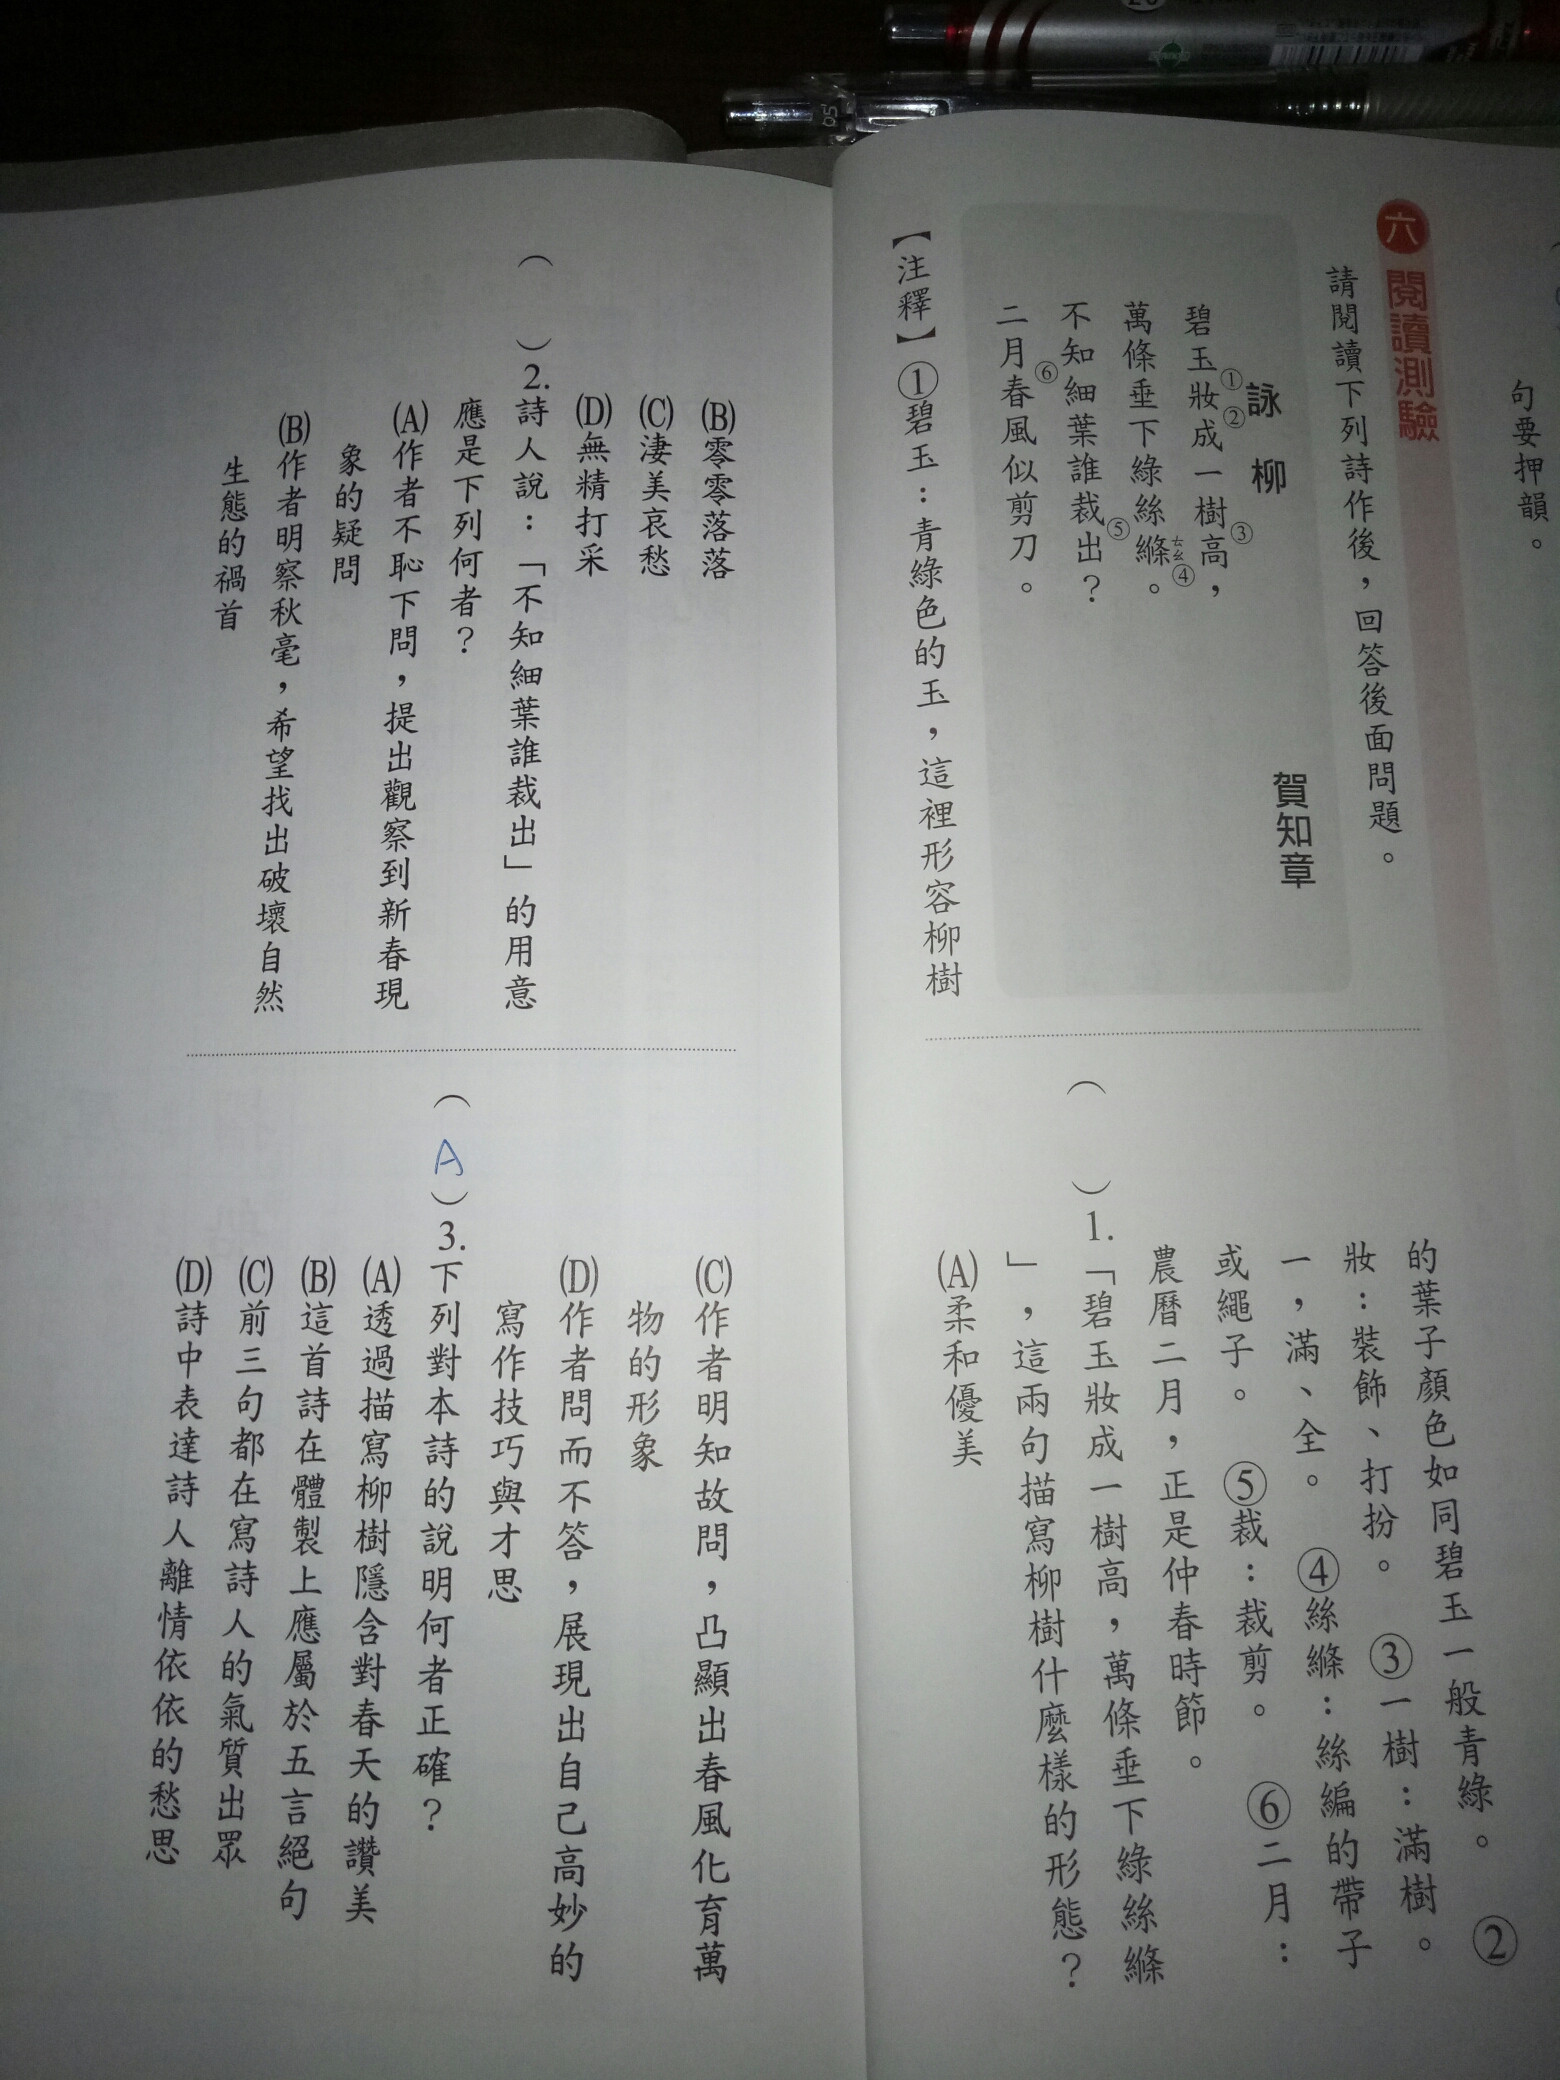 句要押韻。
六 閱讀測驗
請閱讀下列詩作後，回答後面問題。
詠 柳 賀知章
碧玉①妝②成一樹③高，
萬條垂下綠絲絛ㄊㄠ④。
不知細葉誰裁⑤出？
二月⑥春風似剪刀。
【注釋】①碧玉：青綠色的玉，這裡形容柳樹
的葉子顏色如同碧玉一般青綠。 ②
妝：裝飾、打扮。 ③一樹：滿樹。
一，滿、全。 ④絲絛：絲編的帶子
或繩子。 ⑤裁：裁剪。 ⑥二月：
農曆二月，正是仲春時節。
（ ）1.「碧玉妝成一樹高，萬條垂下綠絲絛
」，這兩句描寫柳樹什麼樣的形態？
(A)柔和優美
(B)零零落落
(C)淒美哀愁
(D)無精打采
（ ）2.詩人說：「不知細葉誰裁出」的用意
應是下列何者？
(A)作者不恥下問，提出觀察到新春現
象的疑問
(B)作者明察秋毫，希望找出破壞自然
生態的禍首
(C)作者明知故問，凸顯出春風化育萬
物的形象
(D)作者問而不答，展現出自己高妙的
寫作技巧與才思
（A）3.下列對本詩的說明何者正確？
(A)透過描寫柳樹隱含對春天的讚美
(B)這首詩在體製上應屬於五言絕句
(C)前三句都在寫詩人的氣質出眾
(D)詩中表達詩人離情依依的愁思
05